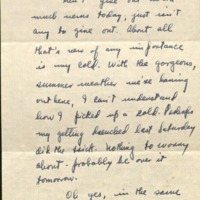 much news today, just isn't
any to give out. About all
that's new of any importance
is my cold. With the gorgeous,
summer weather we're having
out here, I can't understand
how I picked up a cold. Perhaps
my getting drenched last Saturday
did the trick. Nothing to worry
about - probably be over it
tomorrow.
Oh yes, in the same